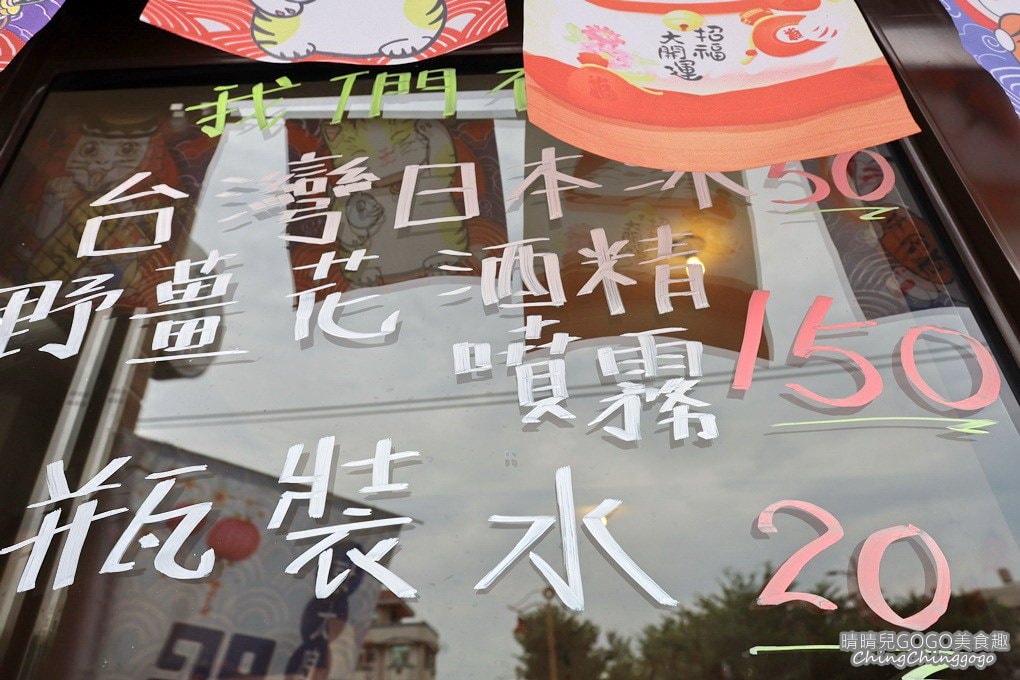 招福
大開運
我們
台灣日本 50
野薑花酒精
噴霧 150
瓶裝水 20
晴晴兒GOGO美食趣
ChingChinggogo